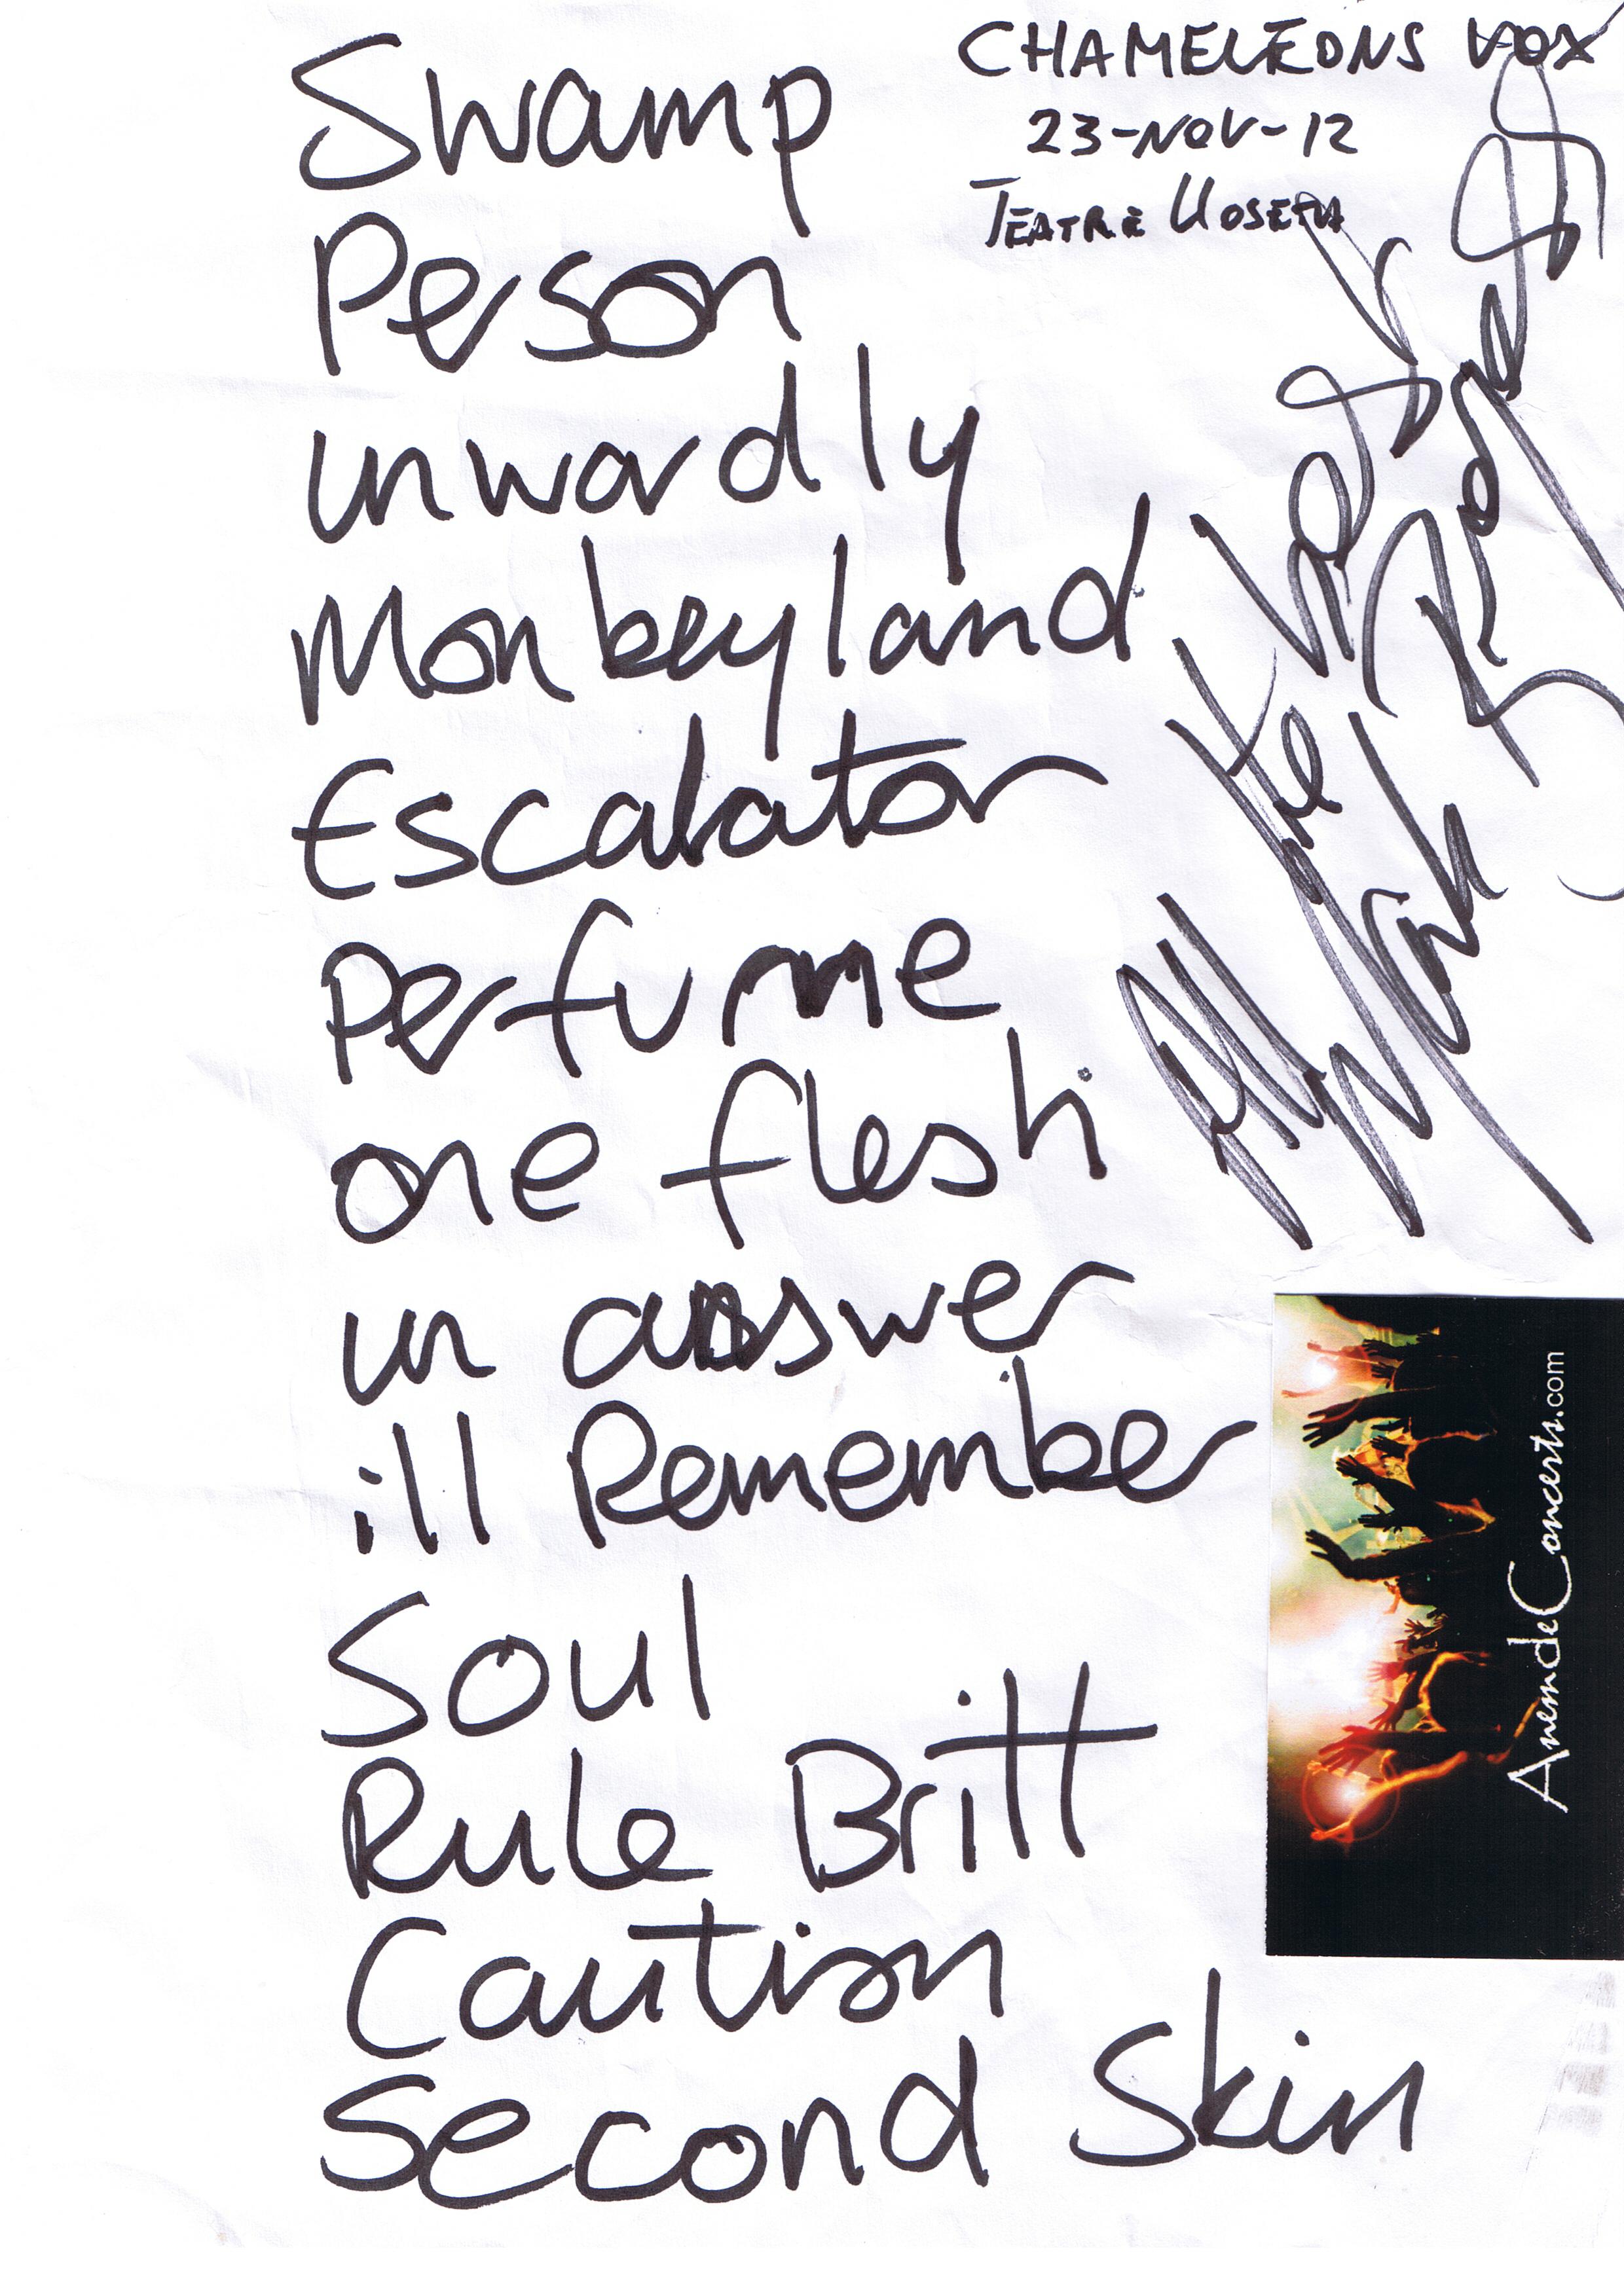 CHAMELEONS VOX
23-NOV-12
TEATRE
Swamp
Person
unwardly
Monkeyland
Escalator
Perfume
one flesh
in answer
ill Remember
Soul
Rule Britt
Caution
Second Skin
All the best
Mark
AnemdeConcerts.com